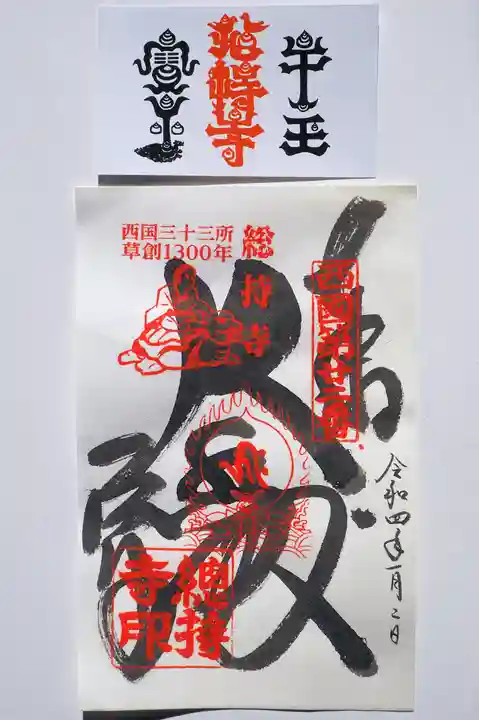 牛王
総持寺
寶印
西国第廿二番
令和四年一月二日
大殿
総持寺
西国三十三所
草創1300年
總持
寺印